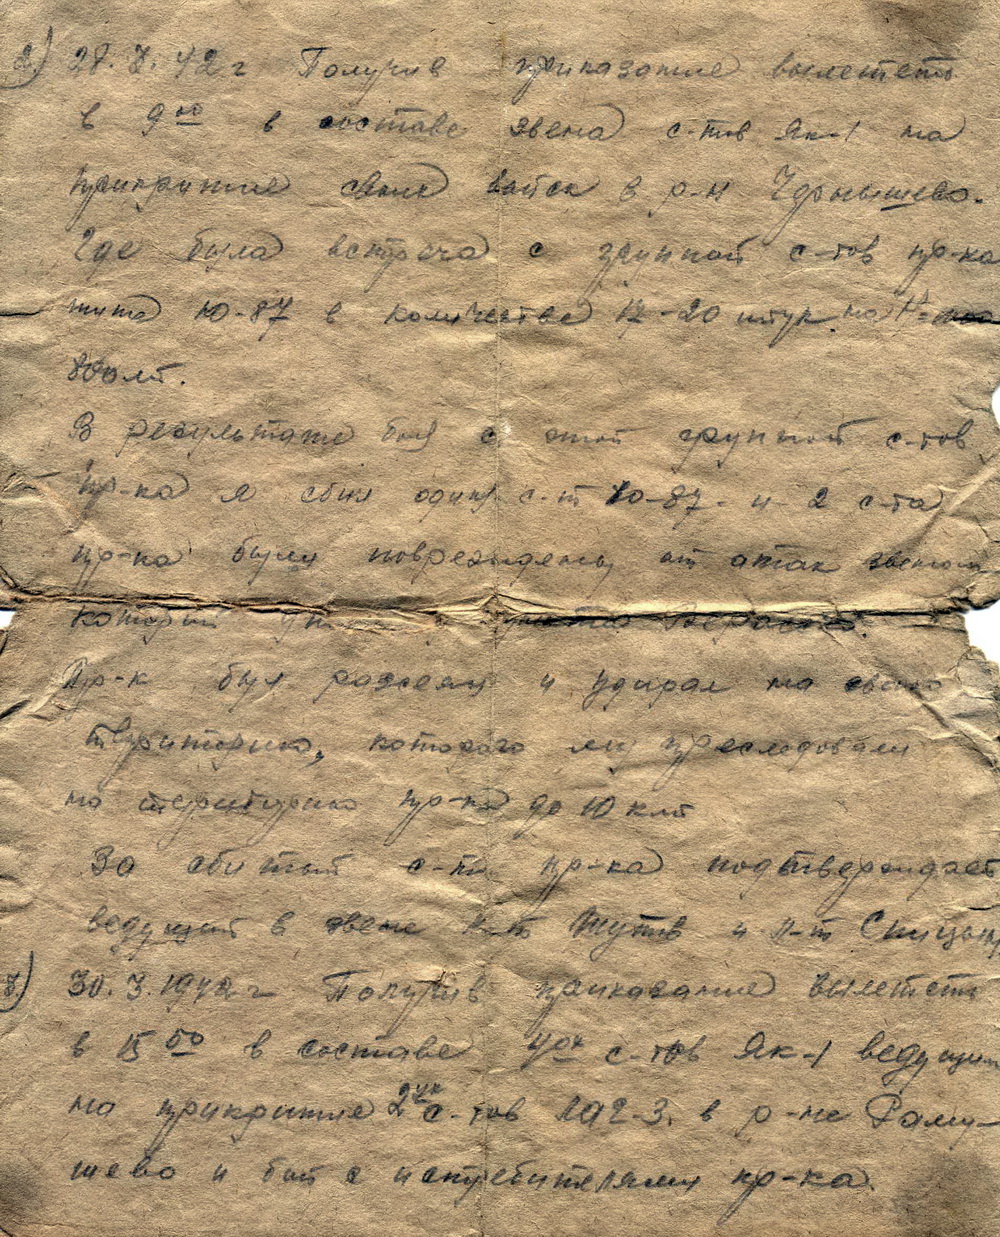 2) 28.3.42 г Получив приказание вылететь
в 9 00 в составе звена с-тов Як-1 на
прикрытие своих войск в р-н Чернышево.
Где была встреча с группой с-тов пр-ка
типа Ю-87 в количестве 17-20 штук на Н-
800 мт.
В результате боя с этой группой с-тов
пр-ка я сбил один с-т Ю-87 - и 2 с-та
пр-ка были повреждены от атак звеном
который
Пр-к был рассеян и удирал на свою
территорию, которого мы преследовали
на територию пр-ка до 10 клт
За сбитый с-т пр-ка подтверждает
ведущий в звене л-т и л-т Спицын,
3) 30.3.1942 г Получив приказание вылететь
в 15 50 в составе 4ох с-тов Як-1 ведущим
на прикрытие 2ух с-тов ЛАГГ-3. в р-не Раму-
шево и бой с истребителями пр-ка.